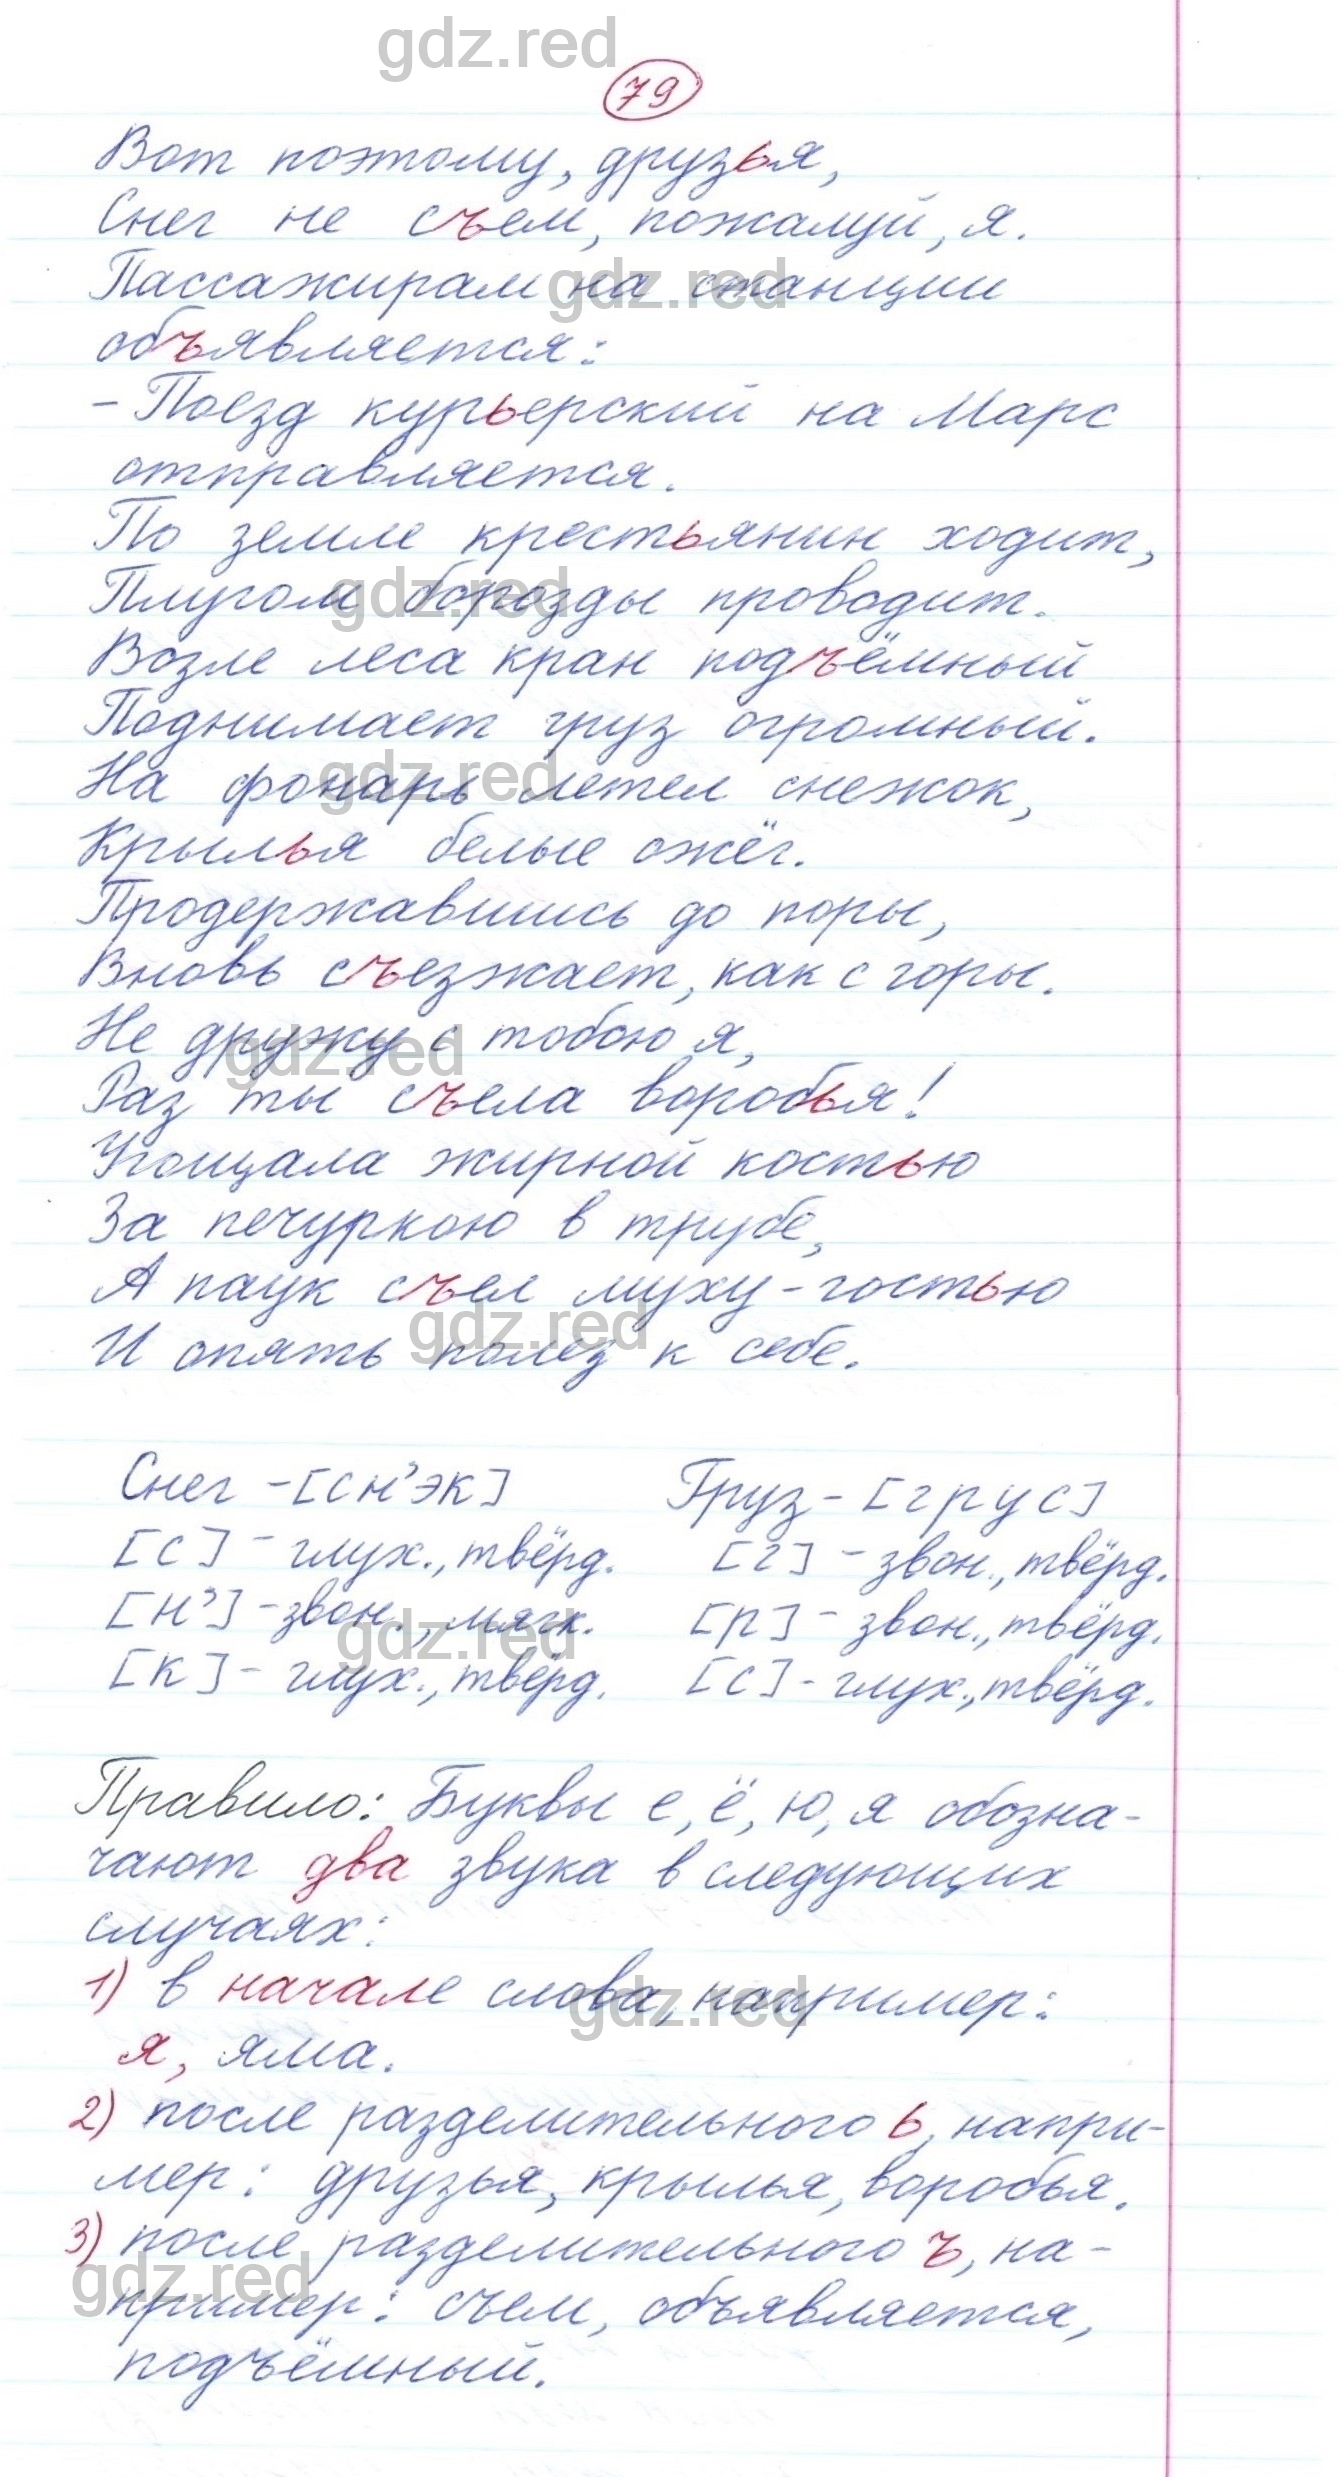 gdz.red
79
Вот поэтому, друзья,
Снег не съем, пожалуй, я.
Пассажирам на станции
gdz.red
объявляется:
- Поезд курьерский на Марс
отправляется.
По земле крестьянин ходит,
Плугом борозды проводит.
gdz.red
Возле леса кран подъёмный
Поднимает груз огромный.
На фонарь летел снежок,
gdz.red
Крылья белые ожёг.
Продержавшись до поры,
Вновь съезжает, как с горы.
Не дружу с тобою я,
gdz.red
Раз ты съела воробья!
Угощала жирной костью
За печуркою в трубе,
А паук съел муху-гостью
gdz.red
И опять полез к себе.
Снег - [сн'эк] Груз - [грус]
[с] - глух., твёрд. [г] - звон., твёрд.
[н'] - звон., мягк. [р] - звон., твёрд.
gdz.red
[к] - глух., твёрд. [с] - глух., твёрд.
Правило: Буквы е, ё, ю, я обозна-
чают два звука в следующих
случаях:
1) в начале слова, например:
gdz.red
я, яма.
2) после разделительного ь, напри-
мер: друзья, крылья, воробья.
3) после разделительного ъ, на-
gdz.red
пример: съем, объявляется,
подъёмный.